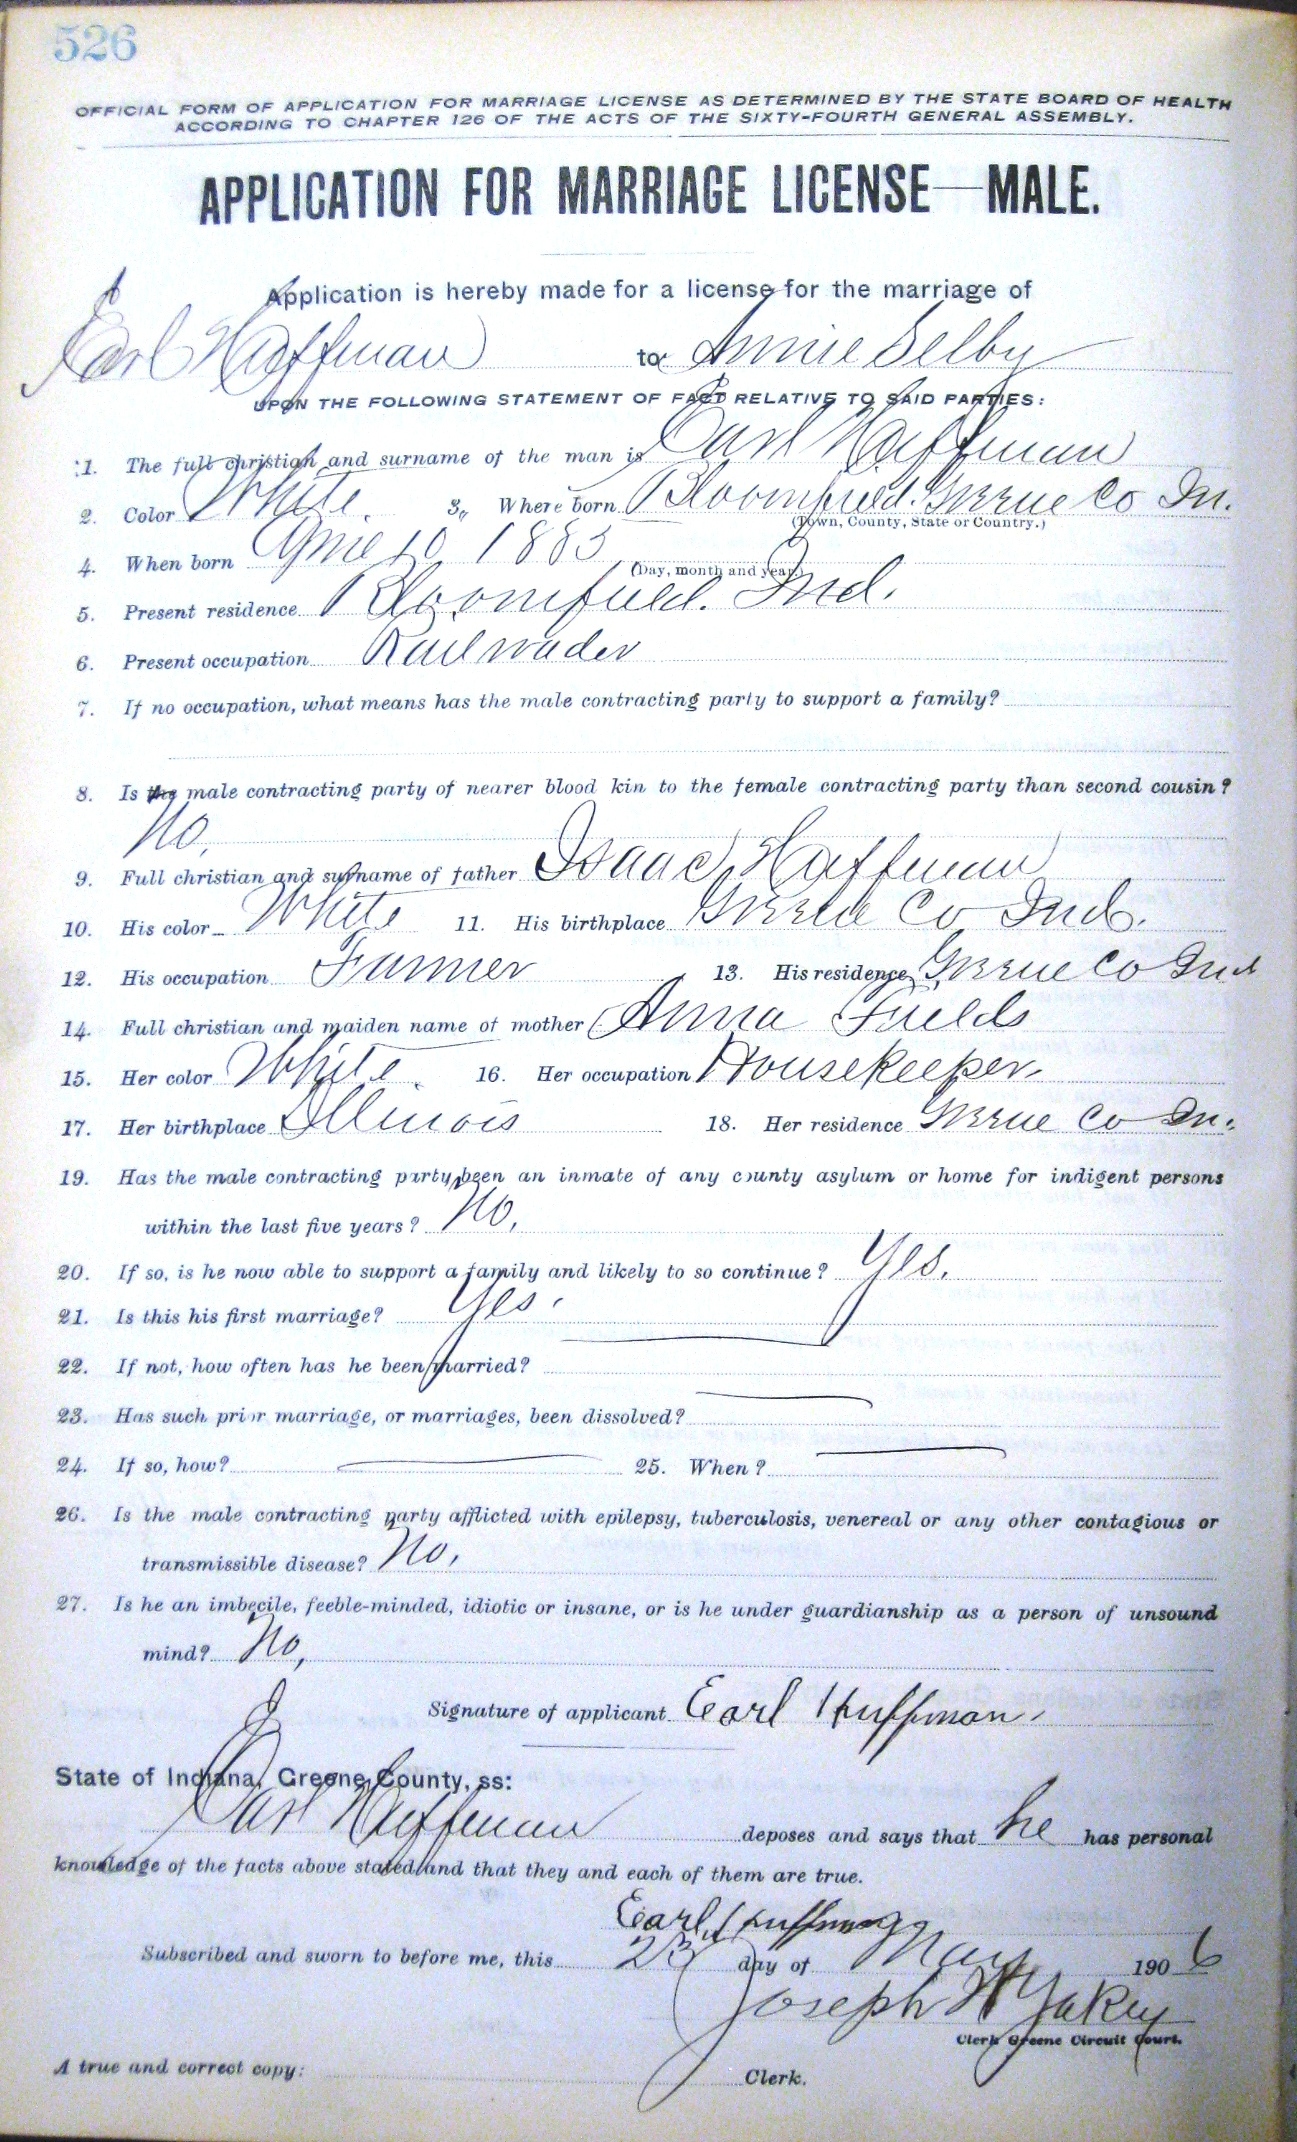 526
OFFICIAL FORM OF APPLICATION FOR MARRIAGE LICENSE AS DETERMINED BY THE STATE BOARD OF HEALTH
ACCORDING TO CHAPTER 126 OF THE ACTS OF THE SIXTY-FOURTH GENERAL ASSEMBLY.
APPLICATION FOR MARRIAGE LICENSE—MALE.
Application is hereby made for a license for the marriage of
Earl Huffman to Annie Selby
UPON THE FOLLOWING STATEMENT OF FACT RELATIVE TO SAID PARTIES:
1. The full christian and surname of the man is Earl Huffman
2. Color White. 3. Where born Bloomfield. Greene Co In.
(Town, County, State or Country.)
4. When born June 10 1883
(Day, month and year.)
5. Present residence Bloomfield. Ind.
6. Present occupation Railroader
7. If no occupation, what means has the male contracting party to support a family?
8. Is the male contracting party of nearer blood kin to the female contracting party than second cousin?
No.
9. Full christian and surname of father Isaac Huffman
10. His color White 11. His birthplace Greene Co Ind.
12. His occupation Farmer 13. His residence Greene Co Ind
14. Full christian and maiden name of mother Anna Fields
15. Her color White. 16. Her occupation Housekeeper.
17. Her birthplace Illinois 18. Her residence Greene Co In.
19. Has the male contracting party been an inmate of any county asylum or home for indigent persons
within the last five years? No.
20. If so, is he now able to support a family and likely to so continue? Yes.
21. Is this his first marriage? Yes.
22. If not, how often has he been married?
23. Has such prior marriage, or marriages, been dissolved?
24. If so, how? 25. When?
26. Is the male contracting party afflicted with epilepsy, tuberculosis, venereal or any other contagious or
transmissible disease? No.
27. Is he an imbecile, feeble-minded, idiotic or insane, or is he under guardianship as a person of unsound
mind? No,
Signature of applicant Earl Huffman.
State of Indiana, Greene County, ss:
Earl Huffman deposes and says that he has personal
knowledge of the facts above stated and that they and each of them are true.
Earl Huffman
Subscribed and sworn to before me, this 23 day of May 1906
Joseph W Yakey
Clerk Greene Circuit Court.
A true and correct copy: Clerk.